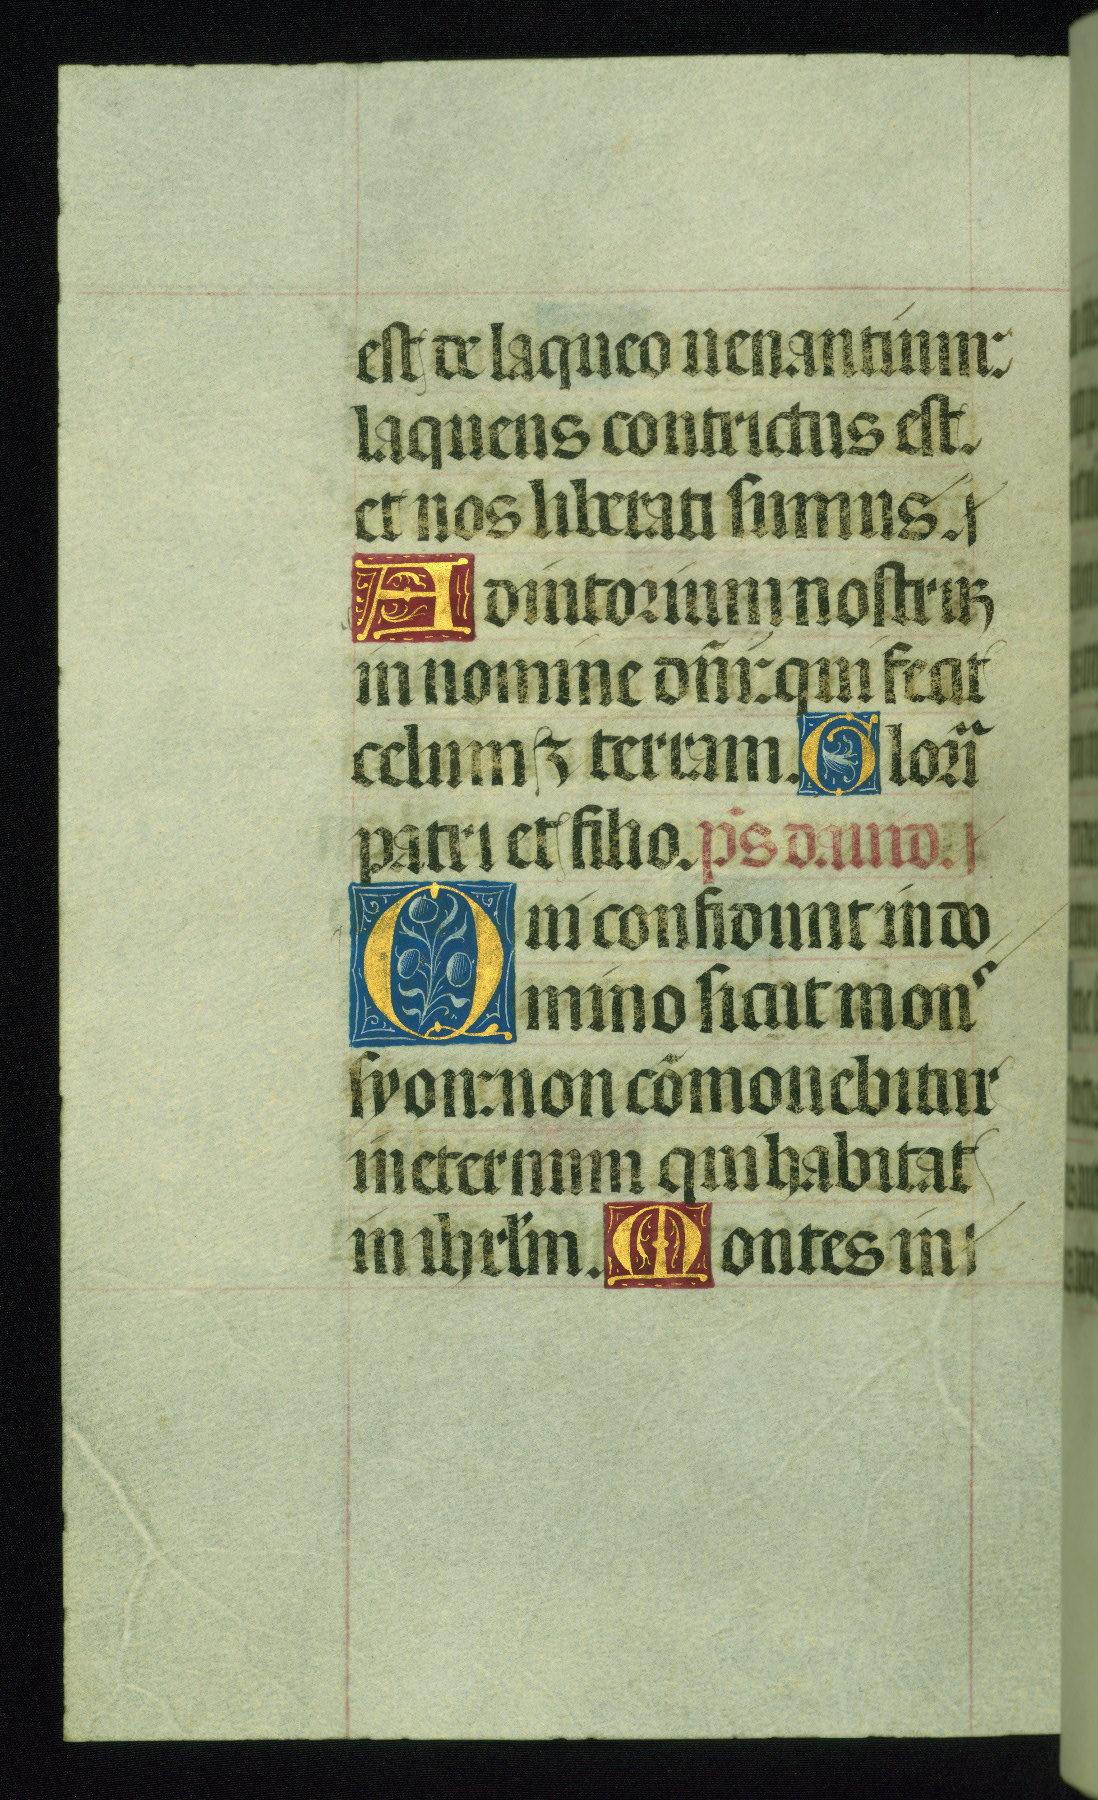 est de laqueo uenantium:
laqueus contrictus est.
et nos liberati sumus.
Adiutorium nostruʒ
in nomine dñi: qui fecit
celum ⁊ terram. Glorı̃
patri et filio. p̃s dauid.
Qui confidunt in do
mino sicut mons
syon: non cõmouebitur
in eternum qui habitat
in ihrłm. Montes in